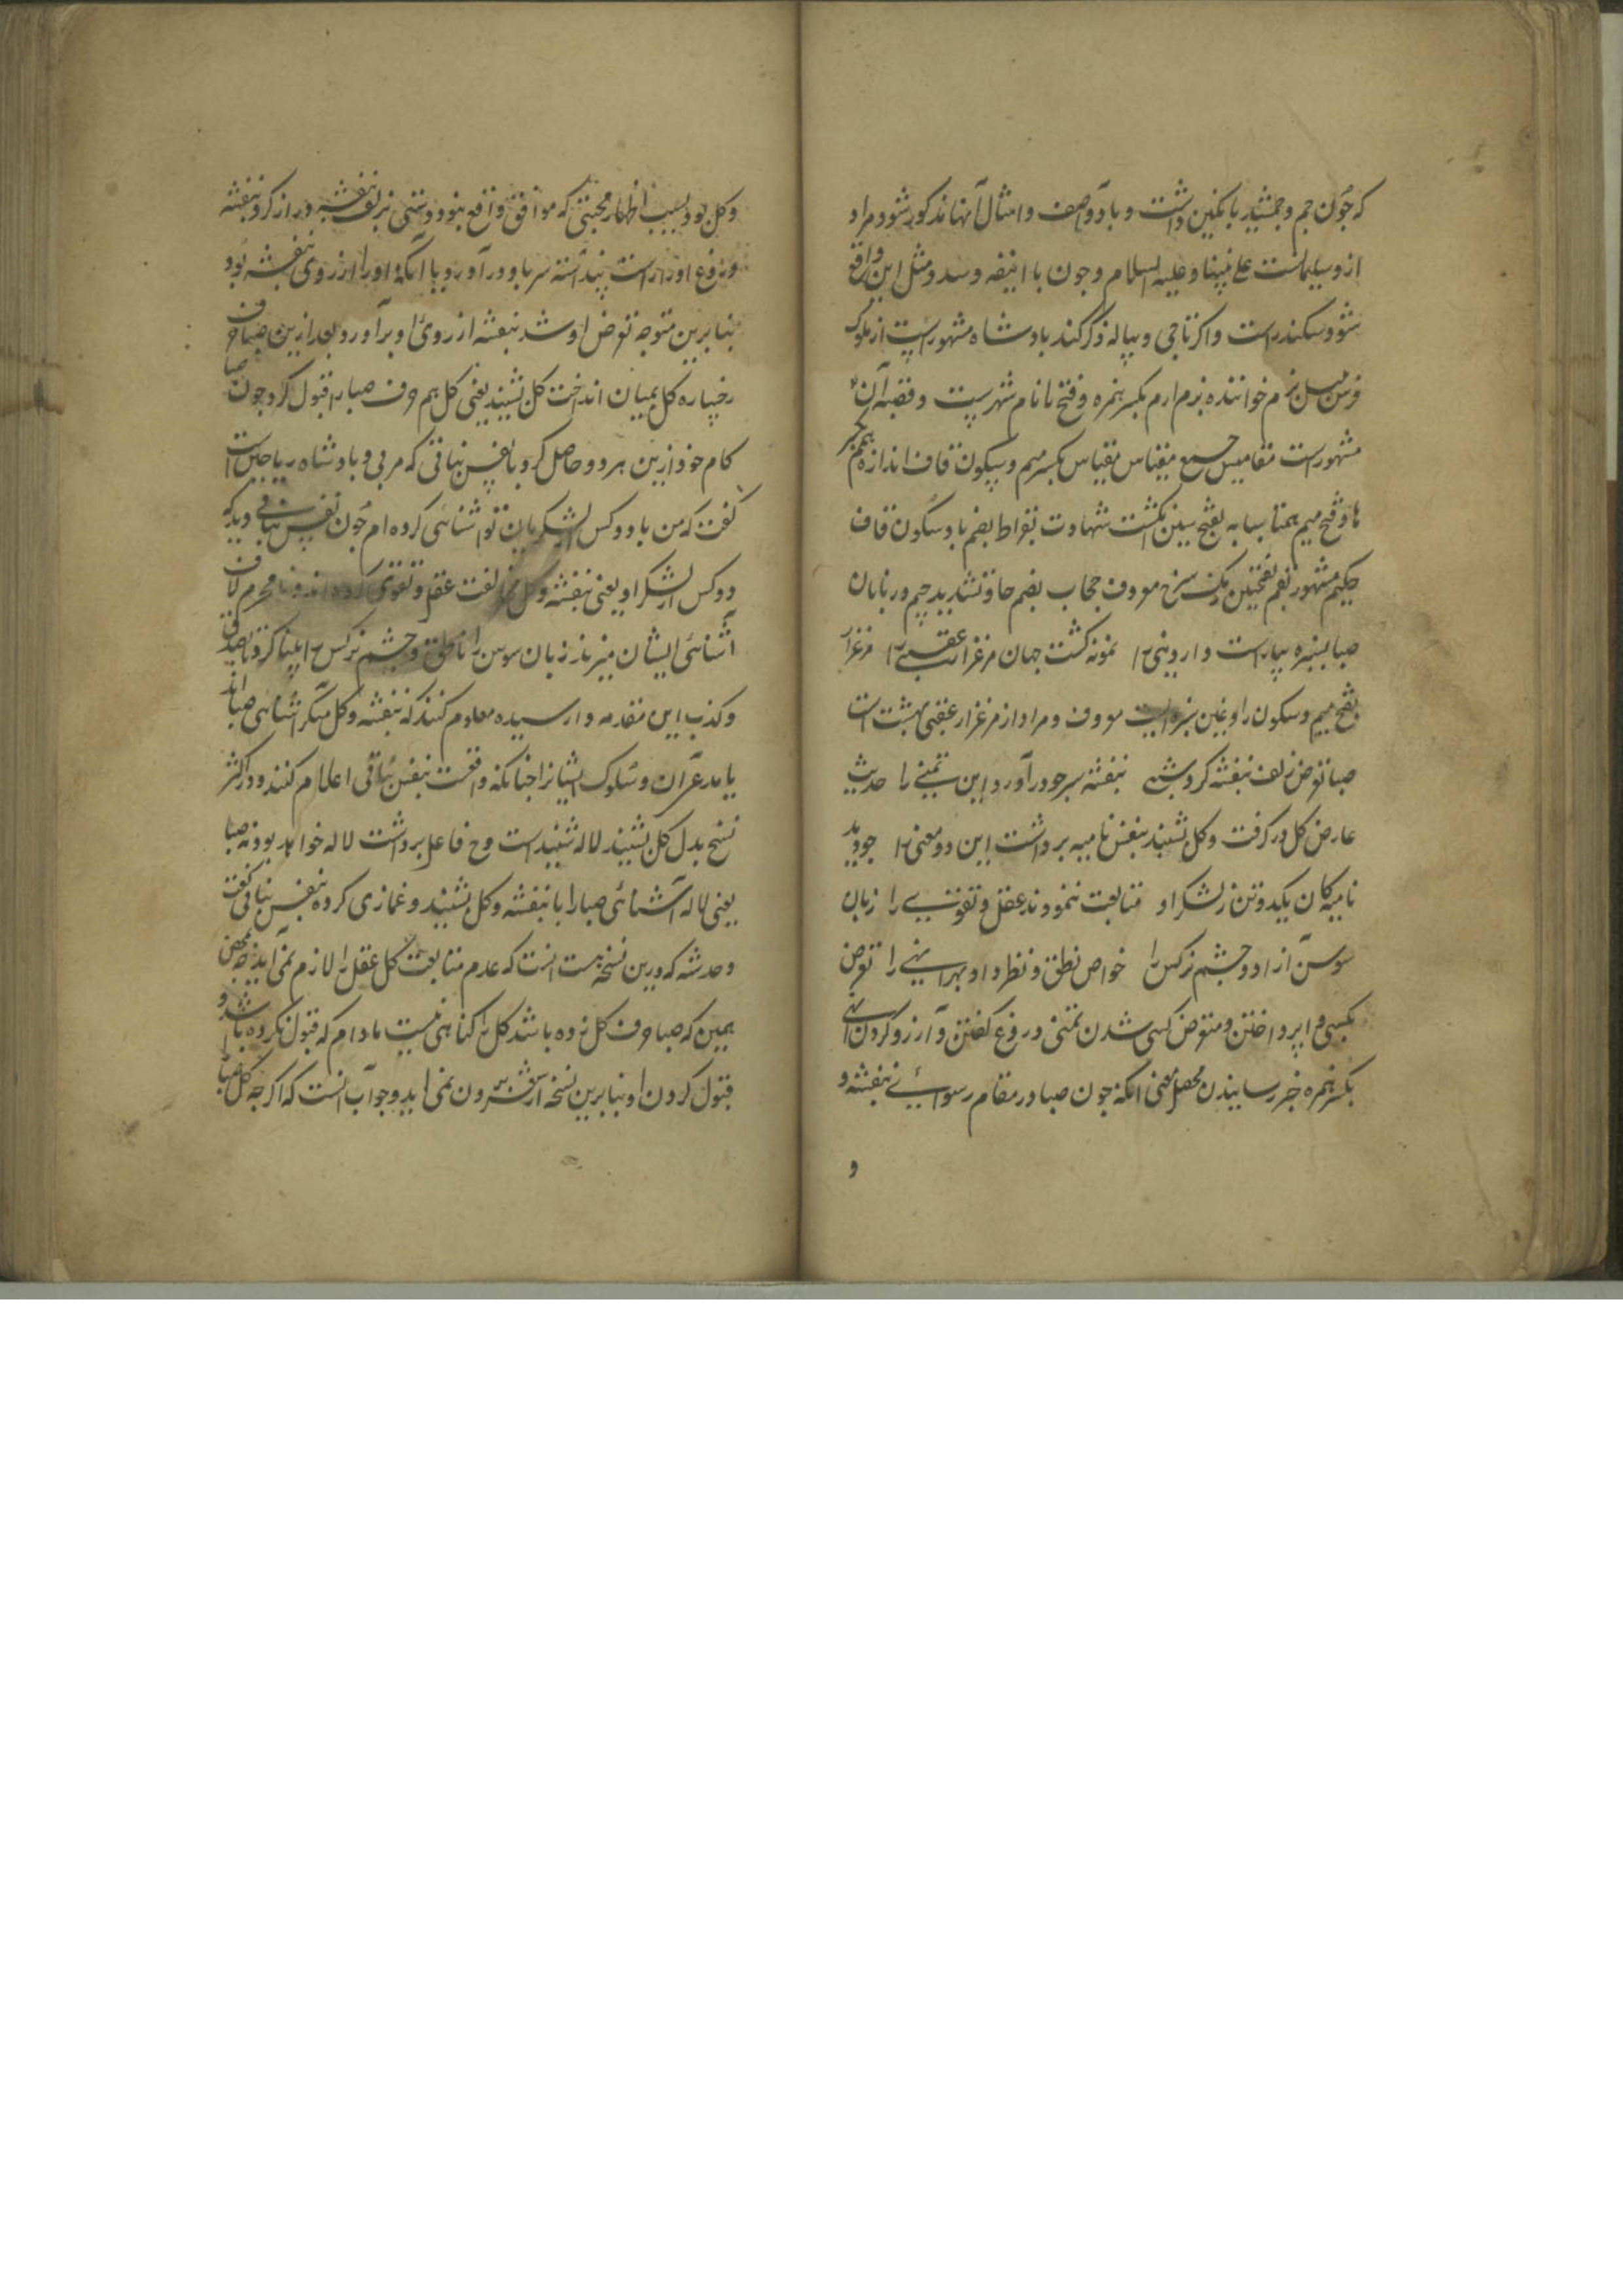 که چون جم و جمشید با نکین و داشت و باد و آصف و امثال آنها مذکور شود مراد
ازو سلیمانست علی نبینا و علیه السلام و چون با اینقه و سد و مثل این واقع
شود سکندر است و اکر تاجی و پیاله ذکر کند بادشاه مشهور است از ملوک
فرس بزم خواننده بزم ارم بکسر همزه و فتح را نام شهریست و قصه آن
مشهور است مقامیس جمع مقیاس مقیاس بکسر میم و سکون قاف اندازه
ها و فتح میم همتا سبابه بفتح سین انکشت شهادت بقراط بضم با و سکون قاف
حکیم مشهور بقم بفتحتین رنک سرخ معروف حجاب بضم حا و تشدید جیم دربانان
صبا بسبزه بیاراست دار دنیی را نمونه کشت جهان مرغزار عقبی را مرغزار
بفتح میم و سکون را و غین سبزه ایست معروف و مراد از مرغزار عقبی بهشت است
صبا تعرض زلف بنفشه کرد شبی بنفشه سر چو در آورد این تمنی را حدیث
عارض کل در کرفت و کل بشنید بنفس نامیه برداشت این دو معنی را چو دید
نامیه کان یکدو تن ز لشکر او متابعت ننمودند عقل و تقویی را زبان
سوسن آزاد و چشم نرکس را خواص نطق و نظر داد بهر انهی را تعرض
بکسی وا پرداختن و متعرض کسی شدن تمنی دروغ کفتن و آرزو کردن انهی
بکسر همزه خبر رسانیدن محصل معنی انکه چون صبا در مقام رسوائی بنفشه و
و
و کل بود بسبب اظهار محبتی که موافق واقع نبود دستی بزلف بنفشه دراز کرد بنفشه
دروغ او را راست پنداشته سر باو در آورد و با آنکه او را از روی بنفشه بود
بنابرین متوجه تعرض او شد بنفشه از روی او بر آورد بعد ازین صبا حرف
رخساره کل بمیان انداخت کل بشنید یعنی کل هم حرف صبا را قبول کرد چون صبا
کام خود ازین هر دو حاصل کرد با نفس نباتی که مربی و بادشاه ریاحین است
کفت که من با دو کس از لشکریان تو آشنائی کرده ام چون نفس نباتی دید که
دو کس از لشکر او یعنی بنفشه و کل مخالفت عقل و تقوی کرده اند و نامحرم لاف
آشنائی ایشان میزند زبان سوسن را ناطق و چشم نرکس را بینا کرد تا صدق
و کذب این مقدمه وارسیده معلوم کنند که بنفشه و کل منکر آشنایی صبا اند
یا مدعی آن و سلوک ایشانرا چنانکه واقعست بنفس نباتی اعلام کنند و در اکثر
نسخ بدل کل بشنید لاله شنید است و ح فاعل برداشت لاله خواهد بود نه صبا
یعنی لاله آشنائی صبا را با بنفشه و کل بشنید و غمازی کرده بنفس نباتی کفت
و خدشه که درین نسخه هست انست که عدم متابعت کل عقل را لازم نمی آید چه بمحض
همین که صبا حرف کل زده باشد کل را کناهی نیست مادام که قبول نکرده باشد و
قبول کردن او بنابرین نسخه از شعر بیرون نمی اید و جواب انست که اکرچه کل صبا را